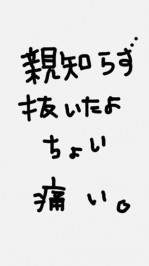 親知らず…
抜いたよ
ちょい
痛い。